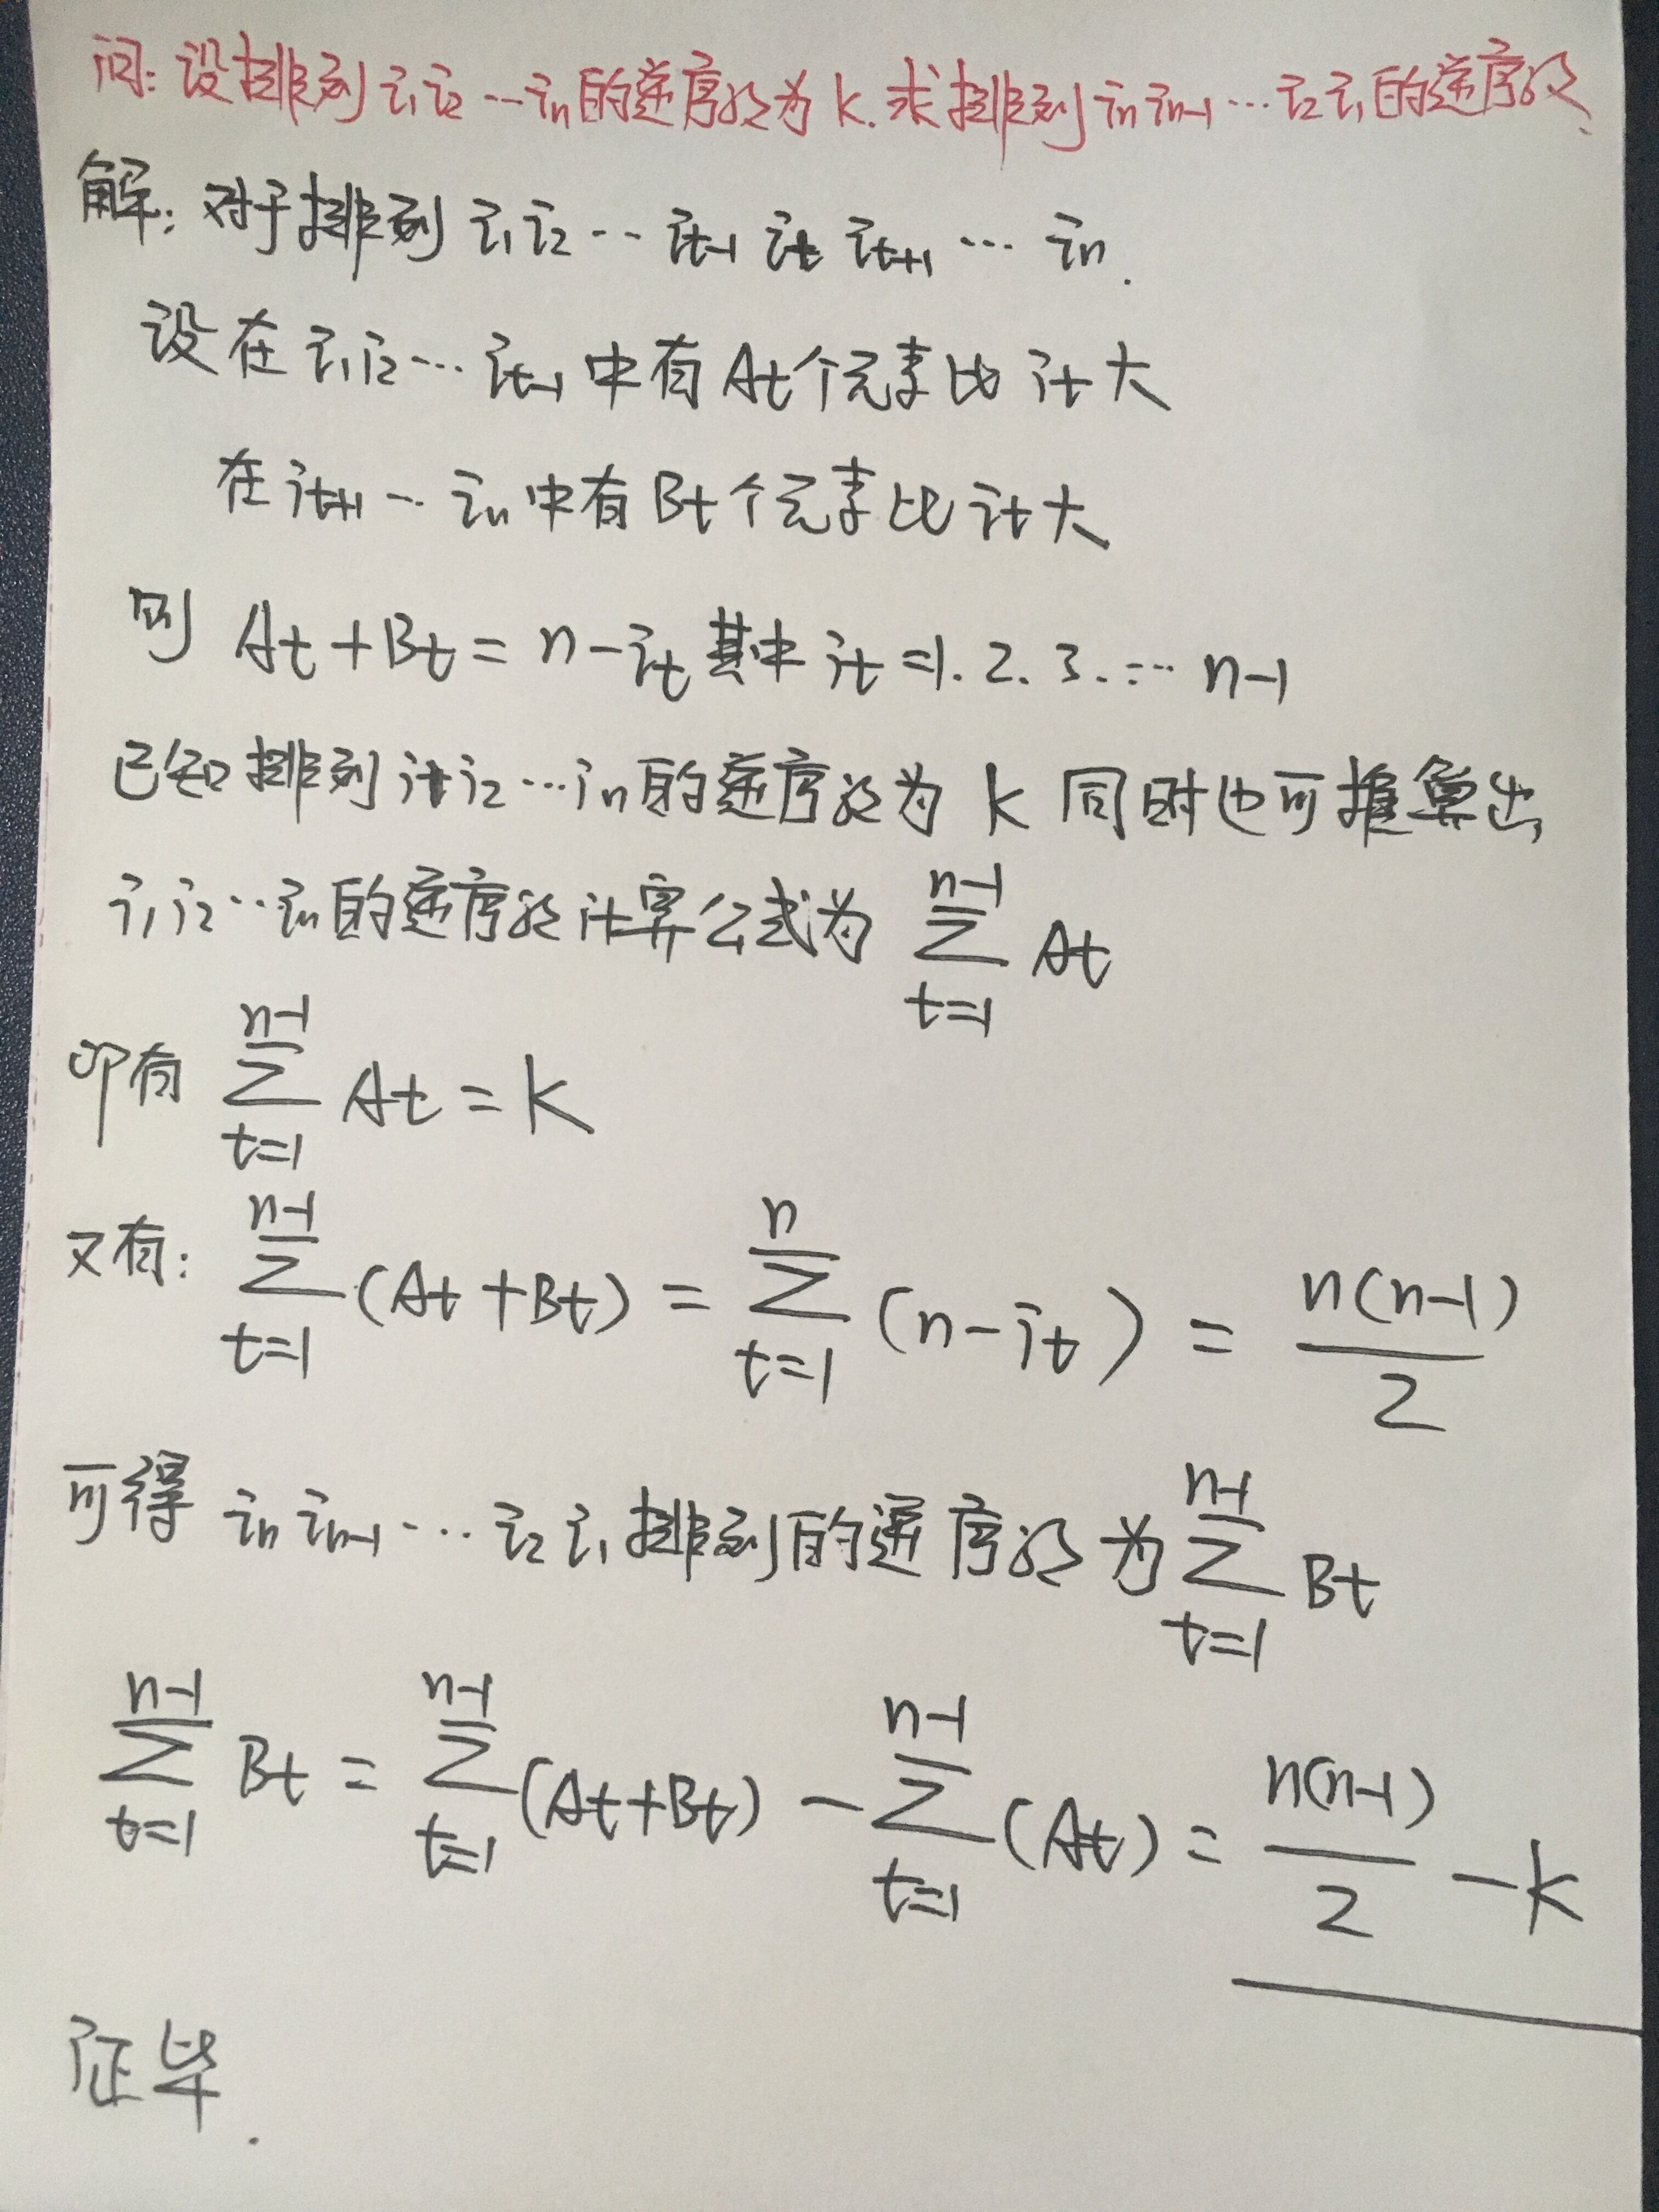 问:设排列 i₁i₂…iₙ的逆序数为 k.求排列 iₙiₙ₋₁…i₂i₁的逆序数.
解:对于排列 i₁i₂…iₜ₋₁ iₜ iₜ₊₁ … iₙ.
设在 i₁i₂…iₜ₋₁ 中有 At个元素比 iₜ 大
在iₜ₊₁…iₙ中有 Bt个元素比 iₜ大
则 At+Bt = n-iₜ 其中 iₜ =1. 2. 3. … n-1
已知排列 i₁i₂…iₙ的逆序数为 k 同时也可推算出
i₁i₂…iₙ的逆序数计算公式为 \sum_{t=1}^{n-1} At
即有 \sum_{t=1}^{n-1} At = k
又有: \sum_{t=1}^{n-1} (At+Bt) = \sum_{t=1}^{n} (n-iₜ) = \frac{n(n-1)}{2}
可得 iₙiₙ₋₁…i₂i₁排列的逆序数为 \sum_{t=1}^{n-1} Bt
\sum_{t=1}^{n-1} Bt = \sum_{t=1}^{n-1} (At+Bt) - \sum_{t=1}^{n-1} (At) = \frac{n(n-1)}{2} - k
证毕.